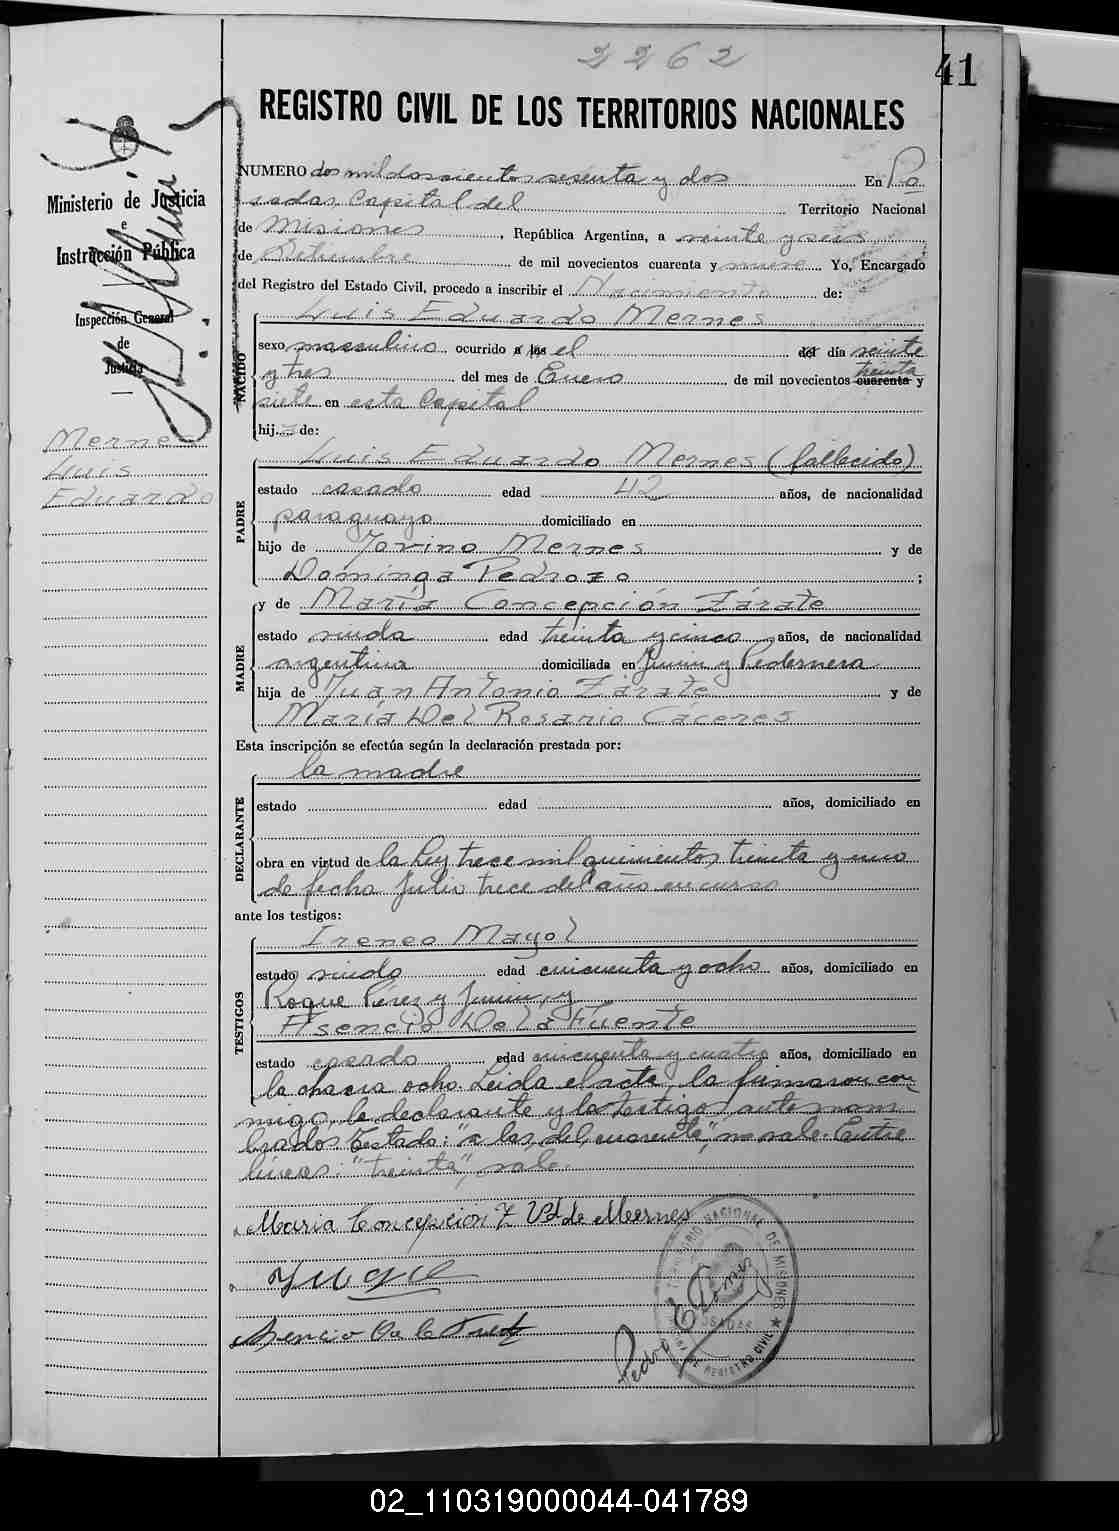 2262
41
REGISTRO CIVIL DE LOS TERRITORIOS NACIONALES
Ministerio de Justicia
e
Instrucción Pública
Inspección General
de
Justicia
Mernes
Luis
Eduardo
NUMERO dos mil doscientos sesenta y dos En Po
sadas, Capital del Territorio Nacional
de Misiones, República Argentina, a veinte y seis
de Setiembre de mil novecientos cuarenta y nueve Yo, Encargado
del Registro del Estado Civil, procedo a inscribir el Nacimiento de:
NACIDO
Luis Eduardo Mernes
sexo masculino ocurrido a las el del día veinte
y tres del mes de Enero de mil novecientos cuarenta treinta y
siete en esta Capital
hijo de:
PADRE
Luis Eduardo Mernes (fallecido)
estado casado edad 42 años, de nacionalidad
paraguayo domiciliado en
hijo de Jovino Mernes y de
Dominga Pedrozo;
MADRE
y de María Concepción Zárate
estado viuda edad treinta y cinco años, de nacionalidad
argentina domiciliada en Junin y Pedernera
hija de Juan Antonio Zárate y de
María Del Rosario Cáceres
Esta inscripción se efectúa según la declaración prestada por:
DECLARANTE
la madre
estado edad años, domiciliado en
obra en virtud de la Ley trece mil quinientos treinta y uno
de fecha Julio trece del año en curso
ante los testigos:
TESTIGOS
Ireneo Mayol
estado viudo edad cincuenta y ocho años, domiciliado en
Roque Pérez y Junin, y
Asencio De La Fuente
estado casado edad cincuenta y cuatro años, domiciliado en
la chacra ocho. Leida el acta, la firmaron con
migo, la declarante y los testigos antes nom
brados. Testado: "a las, del, cuarenta", no vale. Entre
líneas: "treinta", vale.
Maria Concepcion Z Vd de Mernes
Asencio De la Fuente
Pedro E
TERRITORIO NACIONAL DE MISIONES
POSADAS
REGISTRO CIVIL
02_110319000044-041789